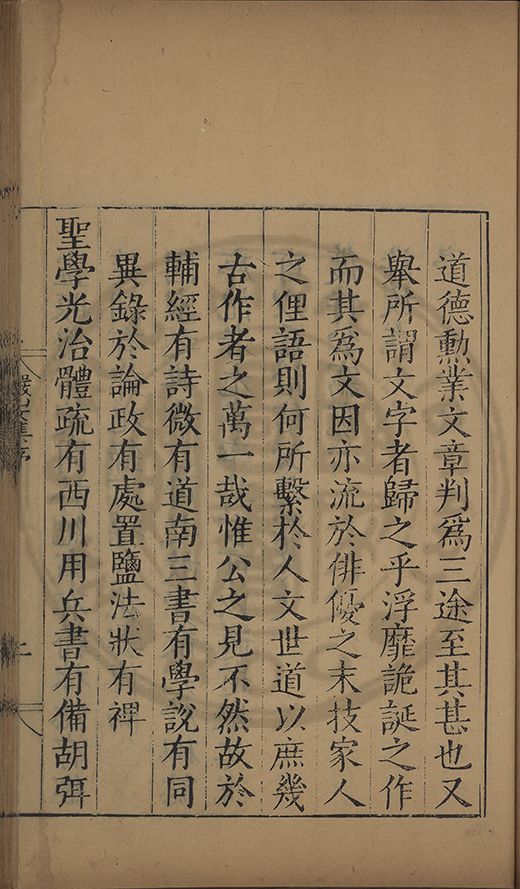 道德勳業文章判爲三途至其甚也又
舉所謂文字者歸之乎浮靡詭誕之作
而其爲文因亦流於俳優之末技家人
之俚語則何所繫於人文世道以庶幾
古作者之萬一哉惟公之見不然故於
輔經有詩微有道南三書有學說有同
異錄於論政有處置鹽法狀有禆
聖學光治體疏有西川用兵書有備胡弭